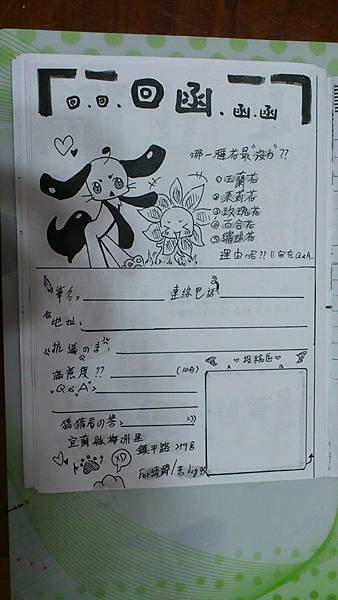 回.回.回函.函.函
哪一種花最"沒力"??
①玉蘭花
②茉莉花
③玫瑰花
④百合花
⑤繡球花
理由呢??((寫在Q&A.
筆名: 連絡巴話
地址:
抗議の言
滿意度?? (10分)
Q&A
♡投稿區♡
猜猜看の答:
宜蘭縣
鎮平路219号
XD
For